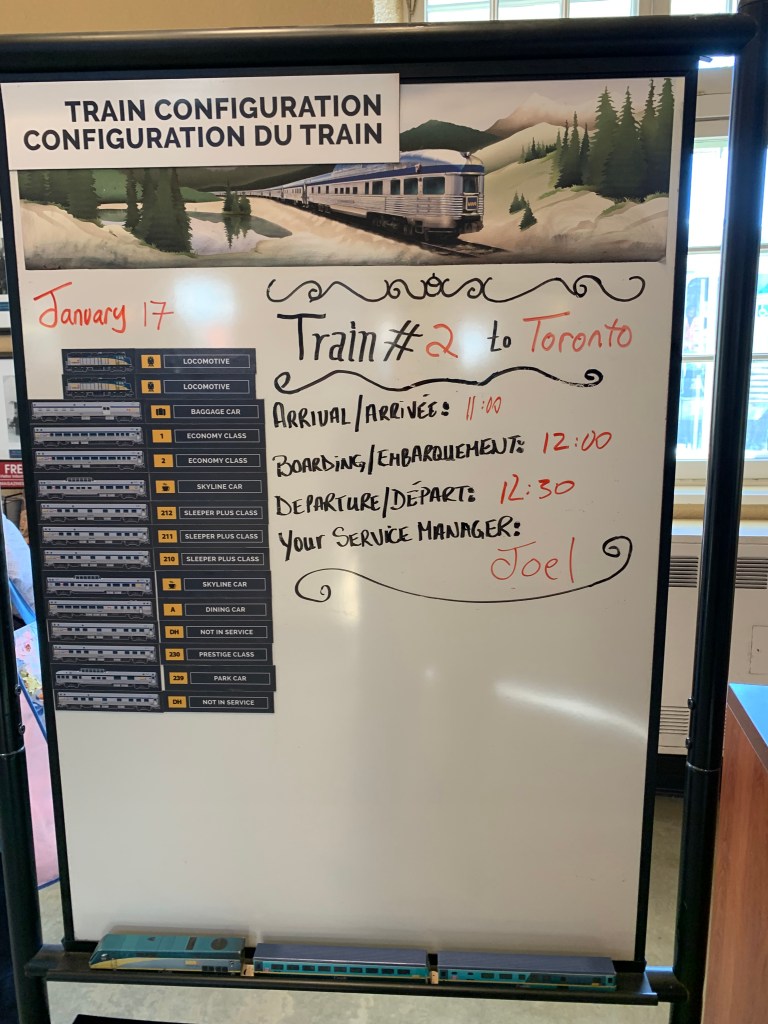 TRAIN CONFIGURATION
CONFIGURATION DU TRAIN
January 17
Train # 2 to Toronto
LOCOMOTIVE
LOCOMOTIVE
BAGGAGE CAR
1 ECONOMY CLASS
2 ECONOMY CLASS
SKYLINE CAR
212 SLEEPER PLUS CLASS
211 SLEEPER PLUS CLASS
210 SLEEPER PLUS CLASS
SKYLINE CAR
A DINING CAR
DH NOT IN SERVICE
230 PRESTIGE CLASS
239 PARK CAR
DH NOT IN SERVICE
ARRIVAL/ARRIVÉE: 11:00
BOARDING/EMBARQUEMENT: 12:00
DEPARTURE/DÉPART: 12:30
Your SERVICE MANAGER:
Joel
FRE